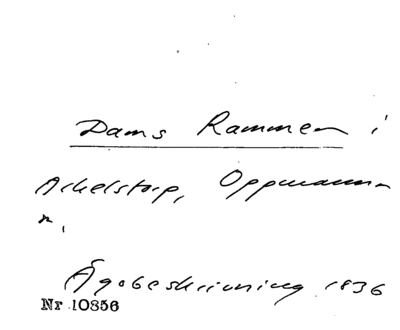 Dams Rammen i
Arkelstorp, Oppmanna
n,
Ägobeskrivning 1836
Nr 10856